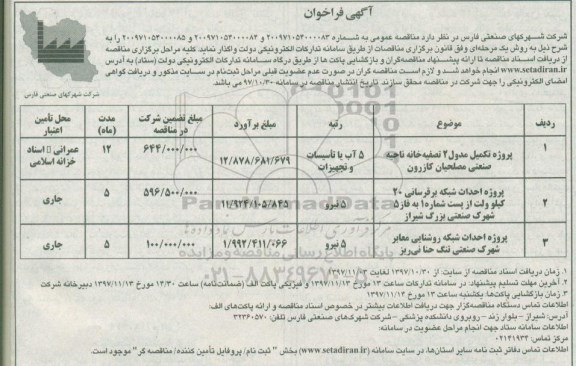 آگهی فراخوان
شرکت شهرکهای صنعتی فارس در نظر دارد مناقصه عمومی به شماره ۲۰۰۹۷۱۰۵۳۰۰۰۰۸۳ و ۲۰۰۹۷۱۰۵۳۰۰۰۰۸۴ و ۲۰۰۹۷۱۰۵۳۰۰۰۰۸۵ را به
شرح ذیل به روش یک مرحله‌ای وفق قانون برگزاری مناقصات از طریق سامانه تدارکات الکترونیکی دولت واگذار نماید. کلیه مراحل برگزاری مناقصه
از دریافت اسناد مناقصه تا ارائه پیشنهاد مناقصه‌گران و بازگشایی پاکت ها از طریق درگاه سامانه تدارکات الکترونیکی دولت (ستاد) به آدرس
www.setadiran.ir انجام خواهد شد و لازم است مناقصه گران در صورت عدم عضویت قبلی مراحل ثبت‌نام در سایت مذکور و دریافت گواهی
امضای الکترونیکی را جهت شرکت در مناقصه محقق سازند. تاریخ انتشار مناقصه در سامانه ۹۷/۱۰/۳۰ می باشد.
شرکت شهرکهای صنعتی فارس
ردیف موضوع رتبه مبلغ برآورد مبلغ تضمین شرکت در مناقصه مدت (ماه) محل تأمین اعتبار
۱ پروژه تکمیل مدول۲ تصفیه‌خانه ناحیه صنعتی مصلحیان کازرون ۵ آب یا تأسیسات و تجهیزات ۱۲/۸۷۸/۶۸۱/۶۷۹ ۶۴۴/۰۰۰/۰۰۰ ۱۲ عمرانی اسناد خزانه اسلامی
۲ پروژه احداث شبکه برقرسانی ۲۰ کیلو ولت از پست شماره۱ به فاز۵ شهرک صنعتی بزرگ شیراز ۵ نیرو ۱۱/۹۲۴/۱۰۵/۸۴۵ ۵۹۶/۵۰۰/۰۰۰ ۵ جاری
۳ پروژه احداث شبکه روشنایی معابر شهرک صنعتی تنگ حنا نی‌ریز ۵ نیرو ۱/۹۹۲/۴۱۱/۰۶۶ ۱۰۰/۰۰۰/۰۰۰ ۵ جاری
۱. زمان دریافت اسناد مناقصه از سایت: از ۱۳۹۷/۱۰/۳۰ لغایت ۱۳۹۷/۱۱/۰۳
۲. آخرین مهلت تسلیم پیشنهاد: در سامانه تدارکات ساعت ۱۳ مورخ ۱۳۹۷/۱۱/۱۳ و فیزیکی پاکت الف (ضمانت‌نامه) ساعت ۱۴/۳۰ مورخ ۱۳۹۷/۱۱/۱۳ دبیرخانه شرکت
۳. زمان بازگشایی پاکت‌ها: یکشنبه ساعت ۱۳ مورخ ۱۳۹۷/۱۱/۱۴
اطلاعات تماس دستگاه مناقصه‌گزار جهت دریافت اطلاعات بیشتر در خصوص اسناد مناقصه و ارائه پاکت‌های الف:
آدرس: شیراز – بلوار زند – روبروی دانشکده پزشکی – شرکت شهرک‌های صنعتی فارس تلفن: ۳۲۳۶۰۵۷۰
اطلاعات سامانه ستاد جهت انجام مراحل عضویت در سامانه:
مرکز تماس: ۰۲۱۴۱۹۳۴
اطلاعات تماس دفاتر ثبت نامه سایر استان‌ها، در سایت سامانه (www.setadiran.ir) بخش "ثبت نام/ پروفایل تأمین کننده/ مناقصه گر" موجود است.
پایگاه اطلاع رسانی مناقصه و مزایده
۰۲۱-۸۸۳۴۹۶۷۰